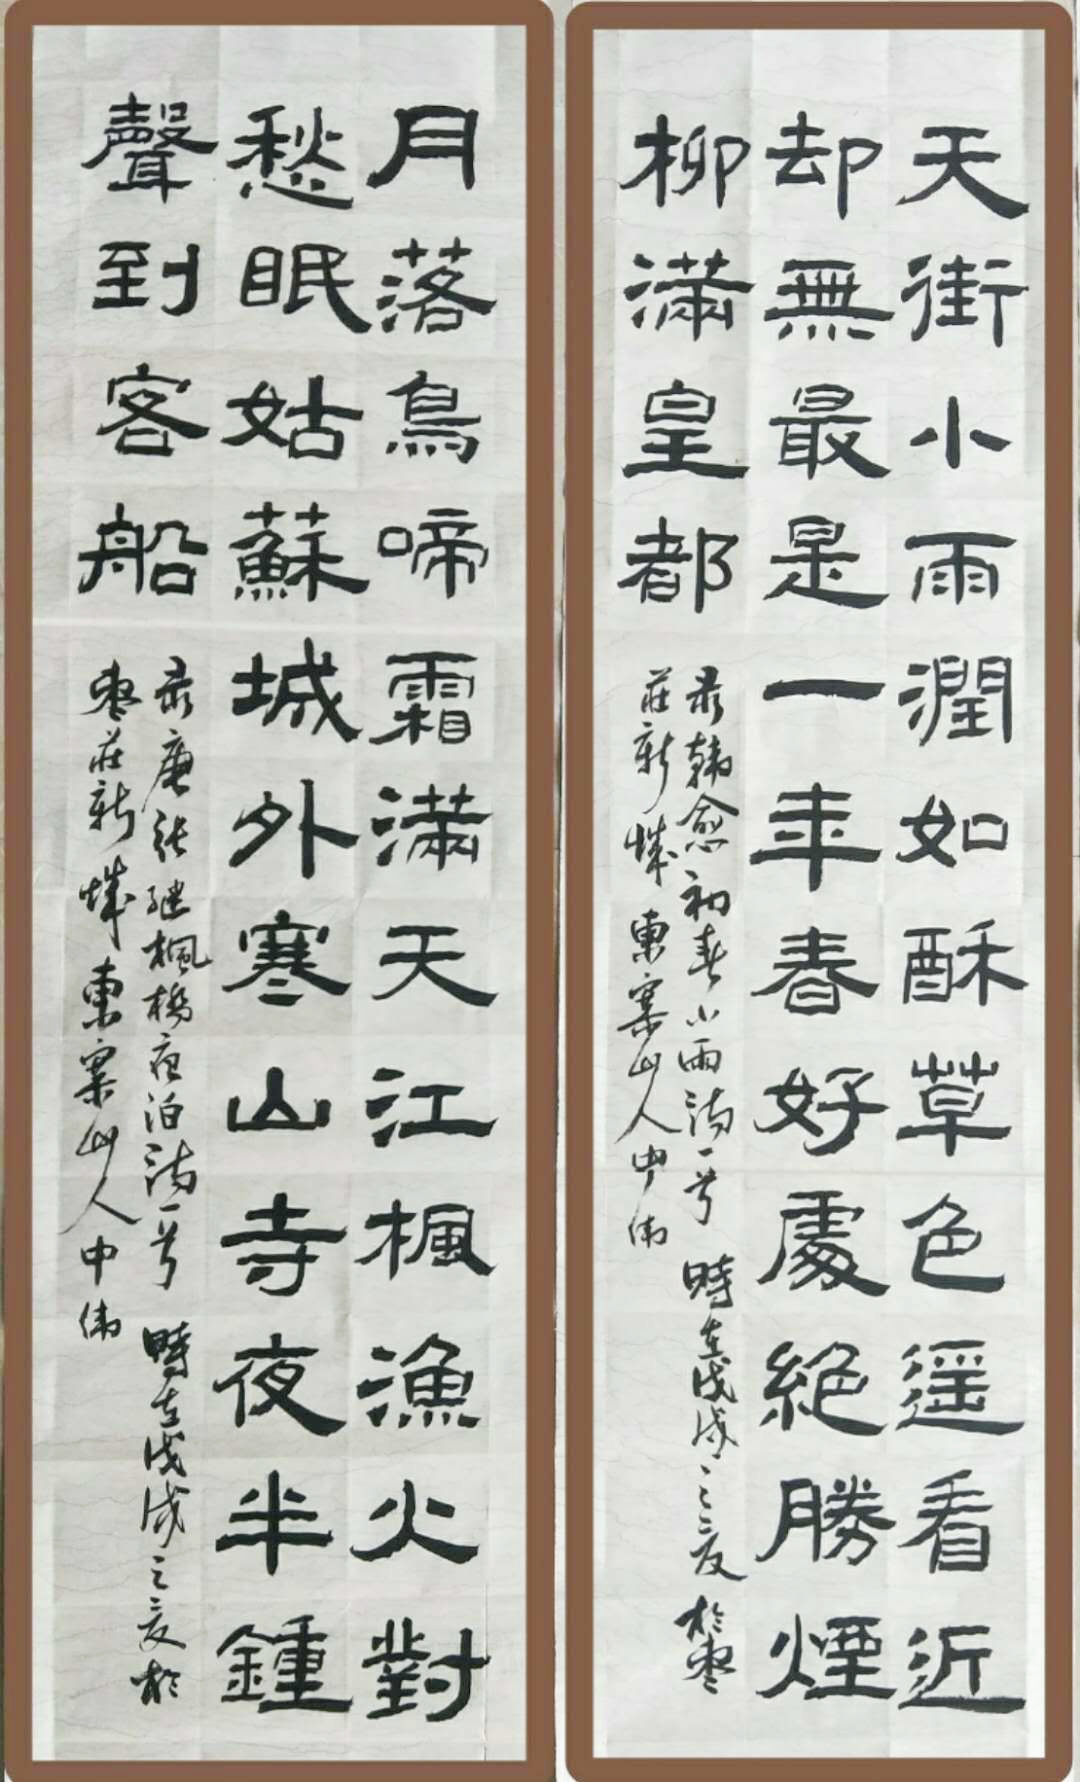 天街小雨潤如酥草色遥看近
却無最是一年春好處絕勝煙
柳滿皇都
录韓愈初春小雨詩一首 時在戊戌之夏 於枣
莊新城 東寨山人中偉
月落鳥啼霜滿天江楓漁火對
愁眠姑蘇城外寒山寺夜半鍾
聲到客船
录唐張继楓橋夜泊詩一首 時在戊戌之夏於
枣莊新城 東寨山人中偉